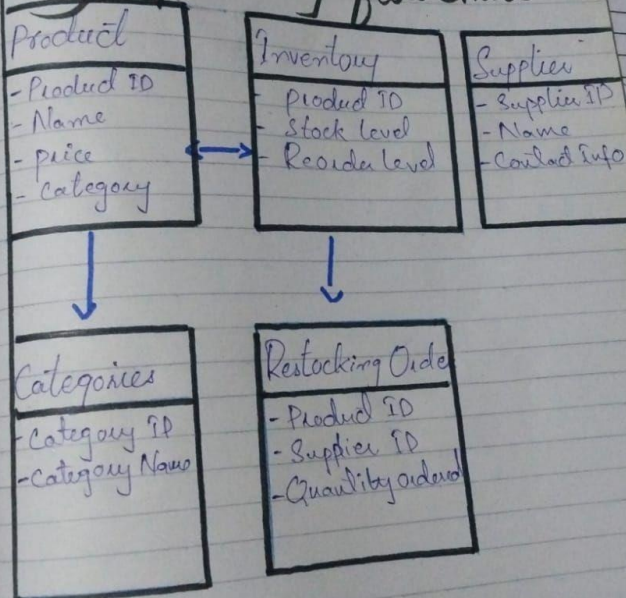 Product
- Product ID
- Name
- Price
- Category
Inventory
- Product ID
- Stock Level
- Reorder Level
Supplier
- Supplier ID
- Name
- Contact Info
Categories
- Category ID
- Category Name
Restocking Orde
- Product ID
- Supplier ID
- Quantity ordered